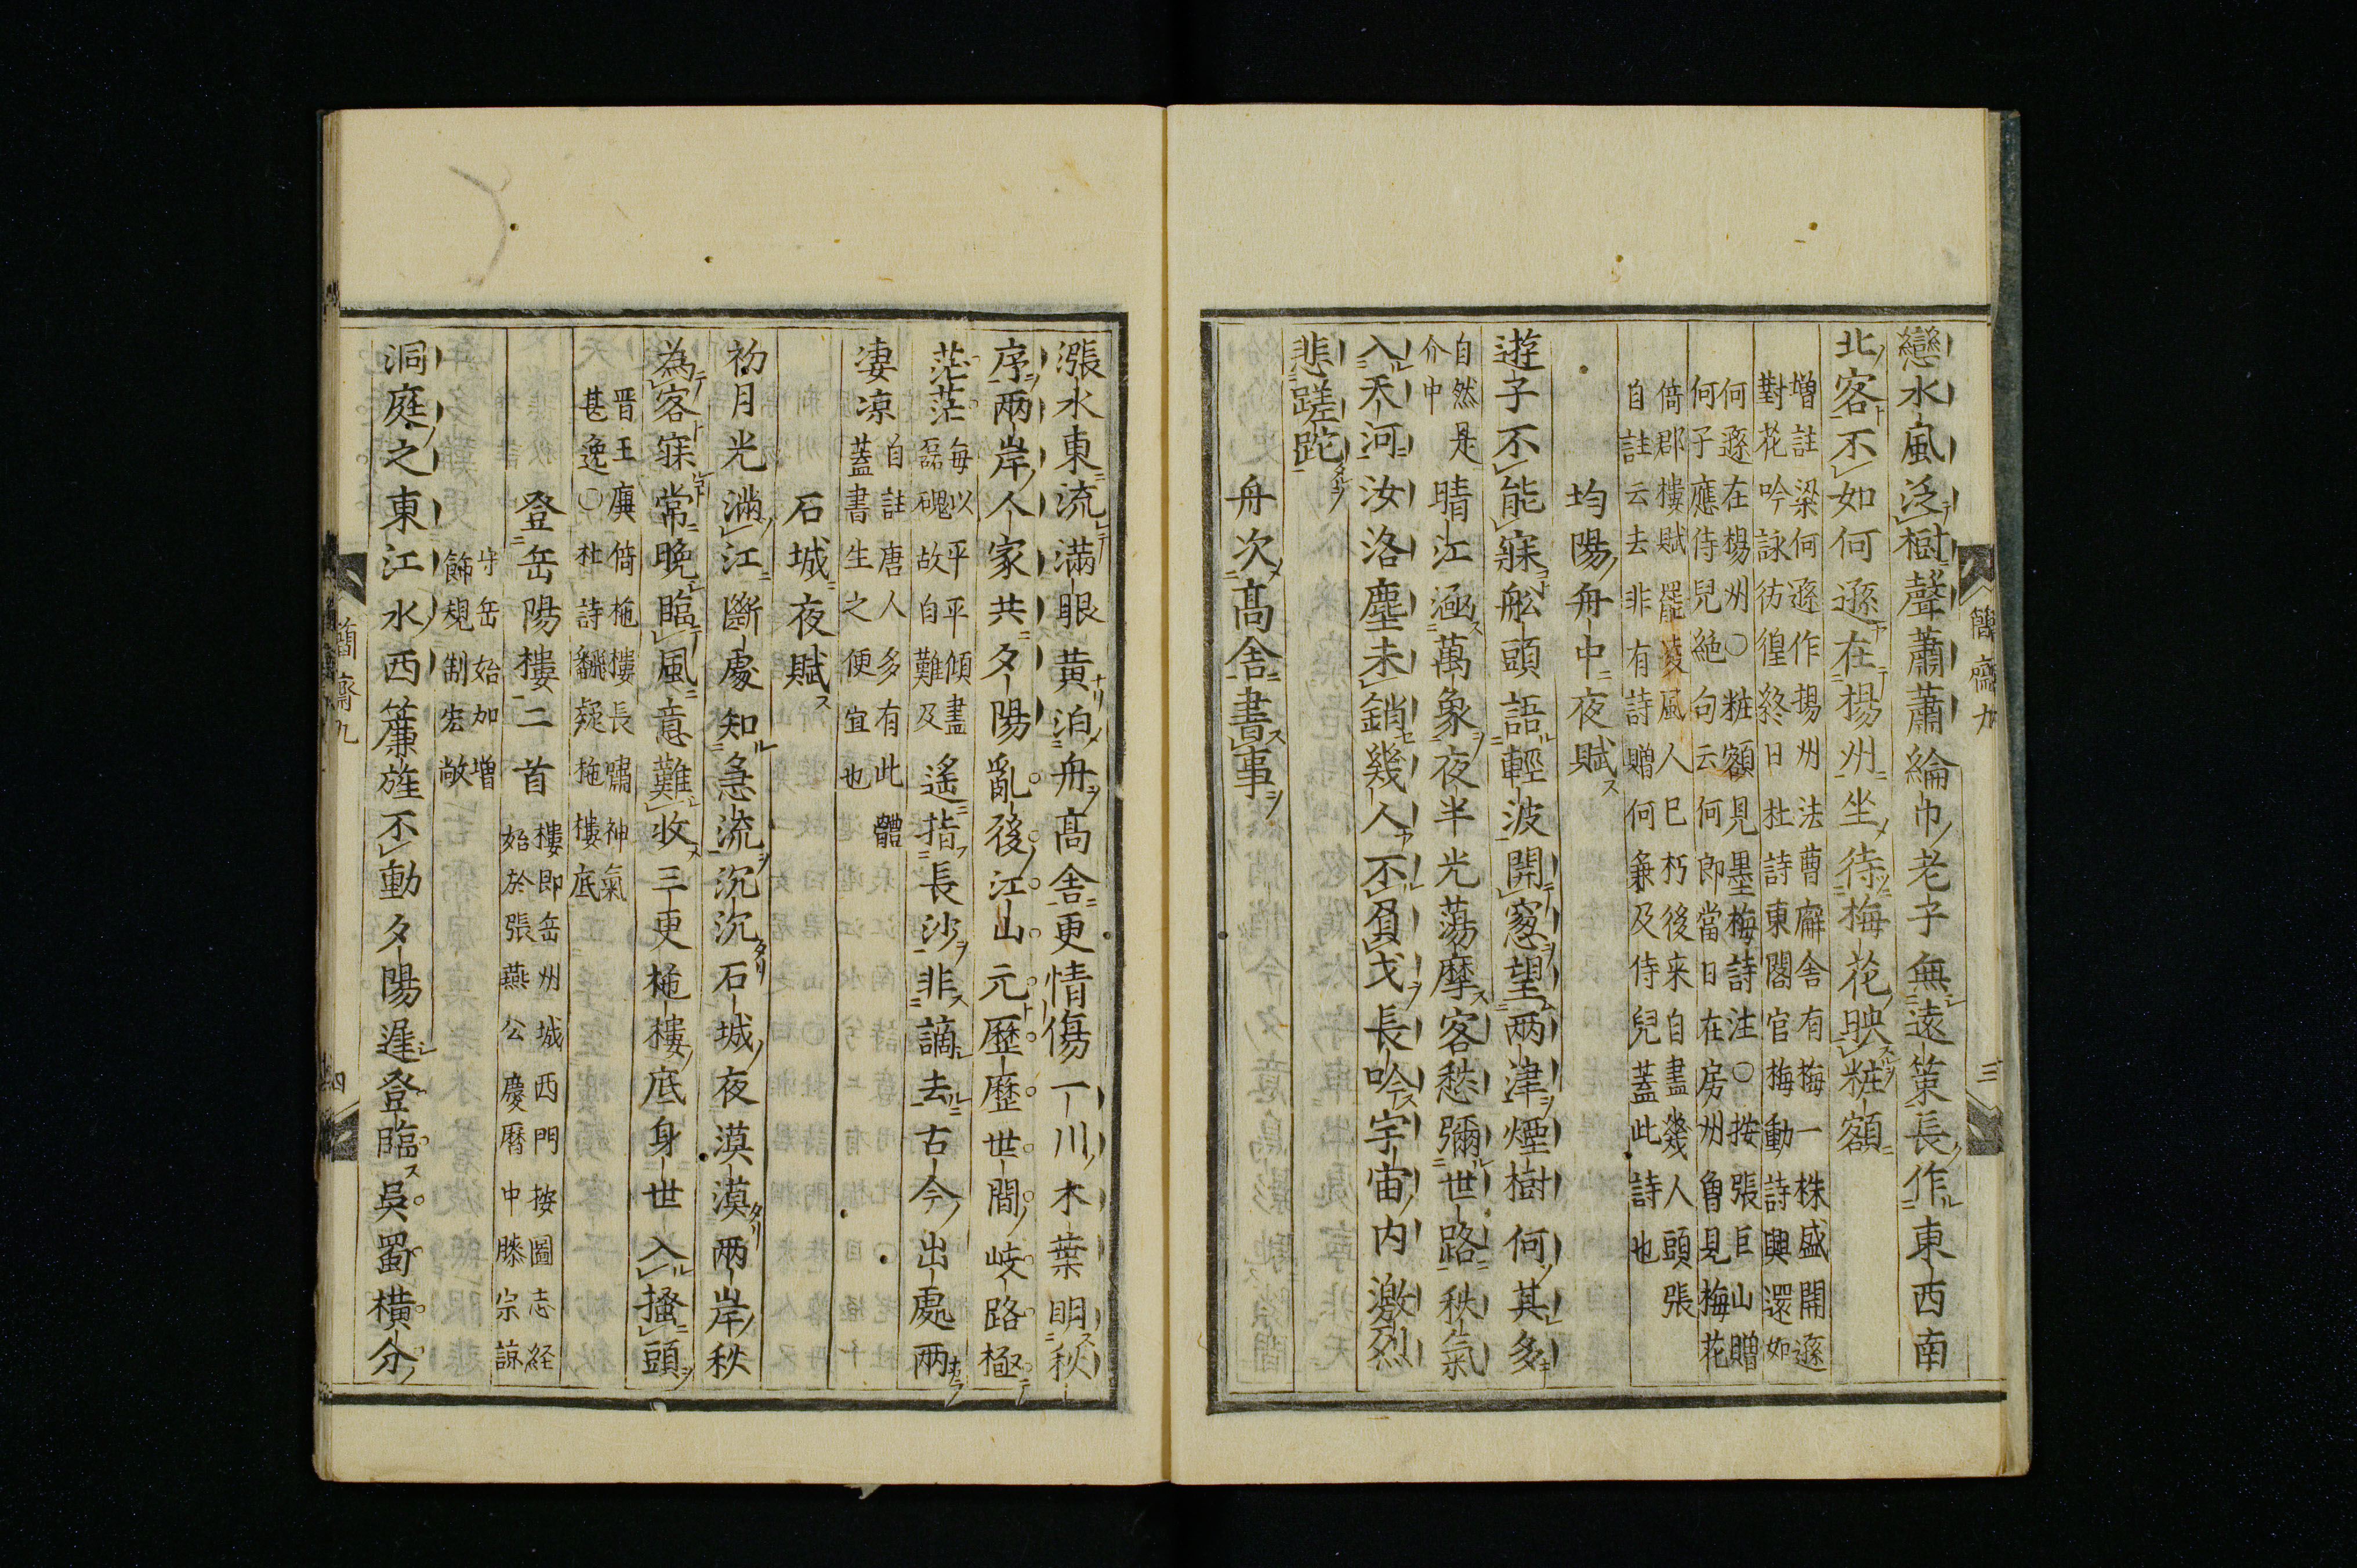 戀水風泛樹聲蕭蕭綸巾老子無遠策長作東西南
北客不如何遜在楊州坐待梅花映粧額
増註梁何遜作揚州法曹廨舍有梅一株盛開遜
對花吟詠彷徨終日杜詩東閣官梅動詩興還如
何遜在楊州○粧額見墨梅詩注○按張巨山贈
何子應侍兒絶句云何郎當日在房州魯見梅花
倚郡樓賦罷凌風人已朽後来自盡幾人頭張
自註云去非有詩贈何兼及侍兒蓋此詩也
均陽舟中夜賦
遊子不能寐舩頭語輕波開窓望兩津煙樹何其多
自然是
介中
晴江涵萬象夜半光蕩摩客愁彌世路秋氣
入天河汝洛塵未銷幾人不負戈長吟宇宙内激烈
悲蹉跎
舟次髙舎書事
簡齋九
三
漲水東流滿眼黄泊舟髙舎更情傷一川木葉明秋
序兩岸人家共夕陽亂後江山元歴歴世間岐路極
茫茫
毎以平平傾盡
磊磈故自難及
遙指長沙非謫去古今出處兩
凄凉
自註唐人多有此體
蓋書生之便宜也
石城夜賦
初月光滿江斷處知急流沉沉石城夜漠漠兩岸秋
為客寐常晩臨風意難收三更柂樓底身世入搔頭
晋王廙倚柂樓長嘯神氣
甚逸○杜詩飜疑柂樓底
登岳陽樓二首
樓即岳州城西門按圖志経
始於張燕公慶暦中滕宗諒
守岳始加増
飾規制宏敞
洞庭之東江水西簾旌不動夕陽遲登臨吳蜀橫分
簡齋九
四